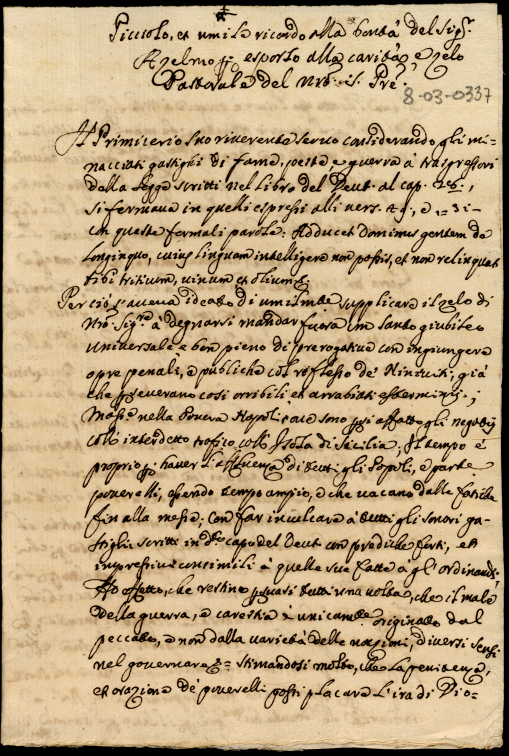 Piccolo, et umile ricordo alla bontà del Sig.r
Azelmo p esposto alla carità, e zelo
Pastorale del Nro. S. Pre.
8-03-0337
Il Primicerio suo riverente servo considerando gli mi=
nacciati gastighi di fame, peste e guerra à trasgressori
della legge scritti nel libro del Deut. al cap. 28.,
si fermava in quelli espressi alli vers. 49, e 51
in queste formali parole: Adducet dominus gentem de
longinquo, cuius linguam intelligere non possis, et non relinquat
tibi triticum, vinum et oleum
Per ciò s'aveva ideato di umilmte supplicare il zelo di
Nro. Sig.re à degnarsi mandar fuora un santo giubileo
universale e ben pieno di prerogative con ingiungere
opre penali, e publiche col riflesso de' Niniviti; già
che perseverano così orribili et arrabbiati esterminij;
Massime nella Povera Napoli, ove sono affatto gli negotij
coll' interdetto traffico coll' Isola di Sicilia; Il tempo è
proprio p haver l'affluenza di tutti gli Popoli, e parte
poverelli, essendo tempo ampio, e che vacano dalle fatiche
fin alla messe; Con far inculcare à tutti gli sonori ga=
stighi scritti in do. capo del Deut. con prediche forti, et
impressive consimili à quelle sue fatte à gl'ordinandi;
Ad effetto, che restino persuasi tutti una volta, che il male
della guerra, e carestia è unicamte originato dal
peccato, e non dalla varietà delle nazioni, diversi sensi
nel governare &= stimandosi molto, che la penitenza,
et orazione de' poverelli possi placare l'ira di Dio=